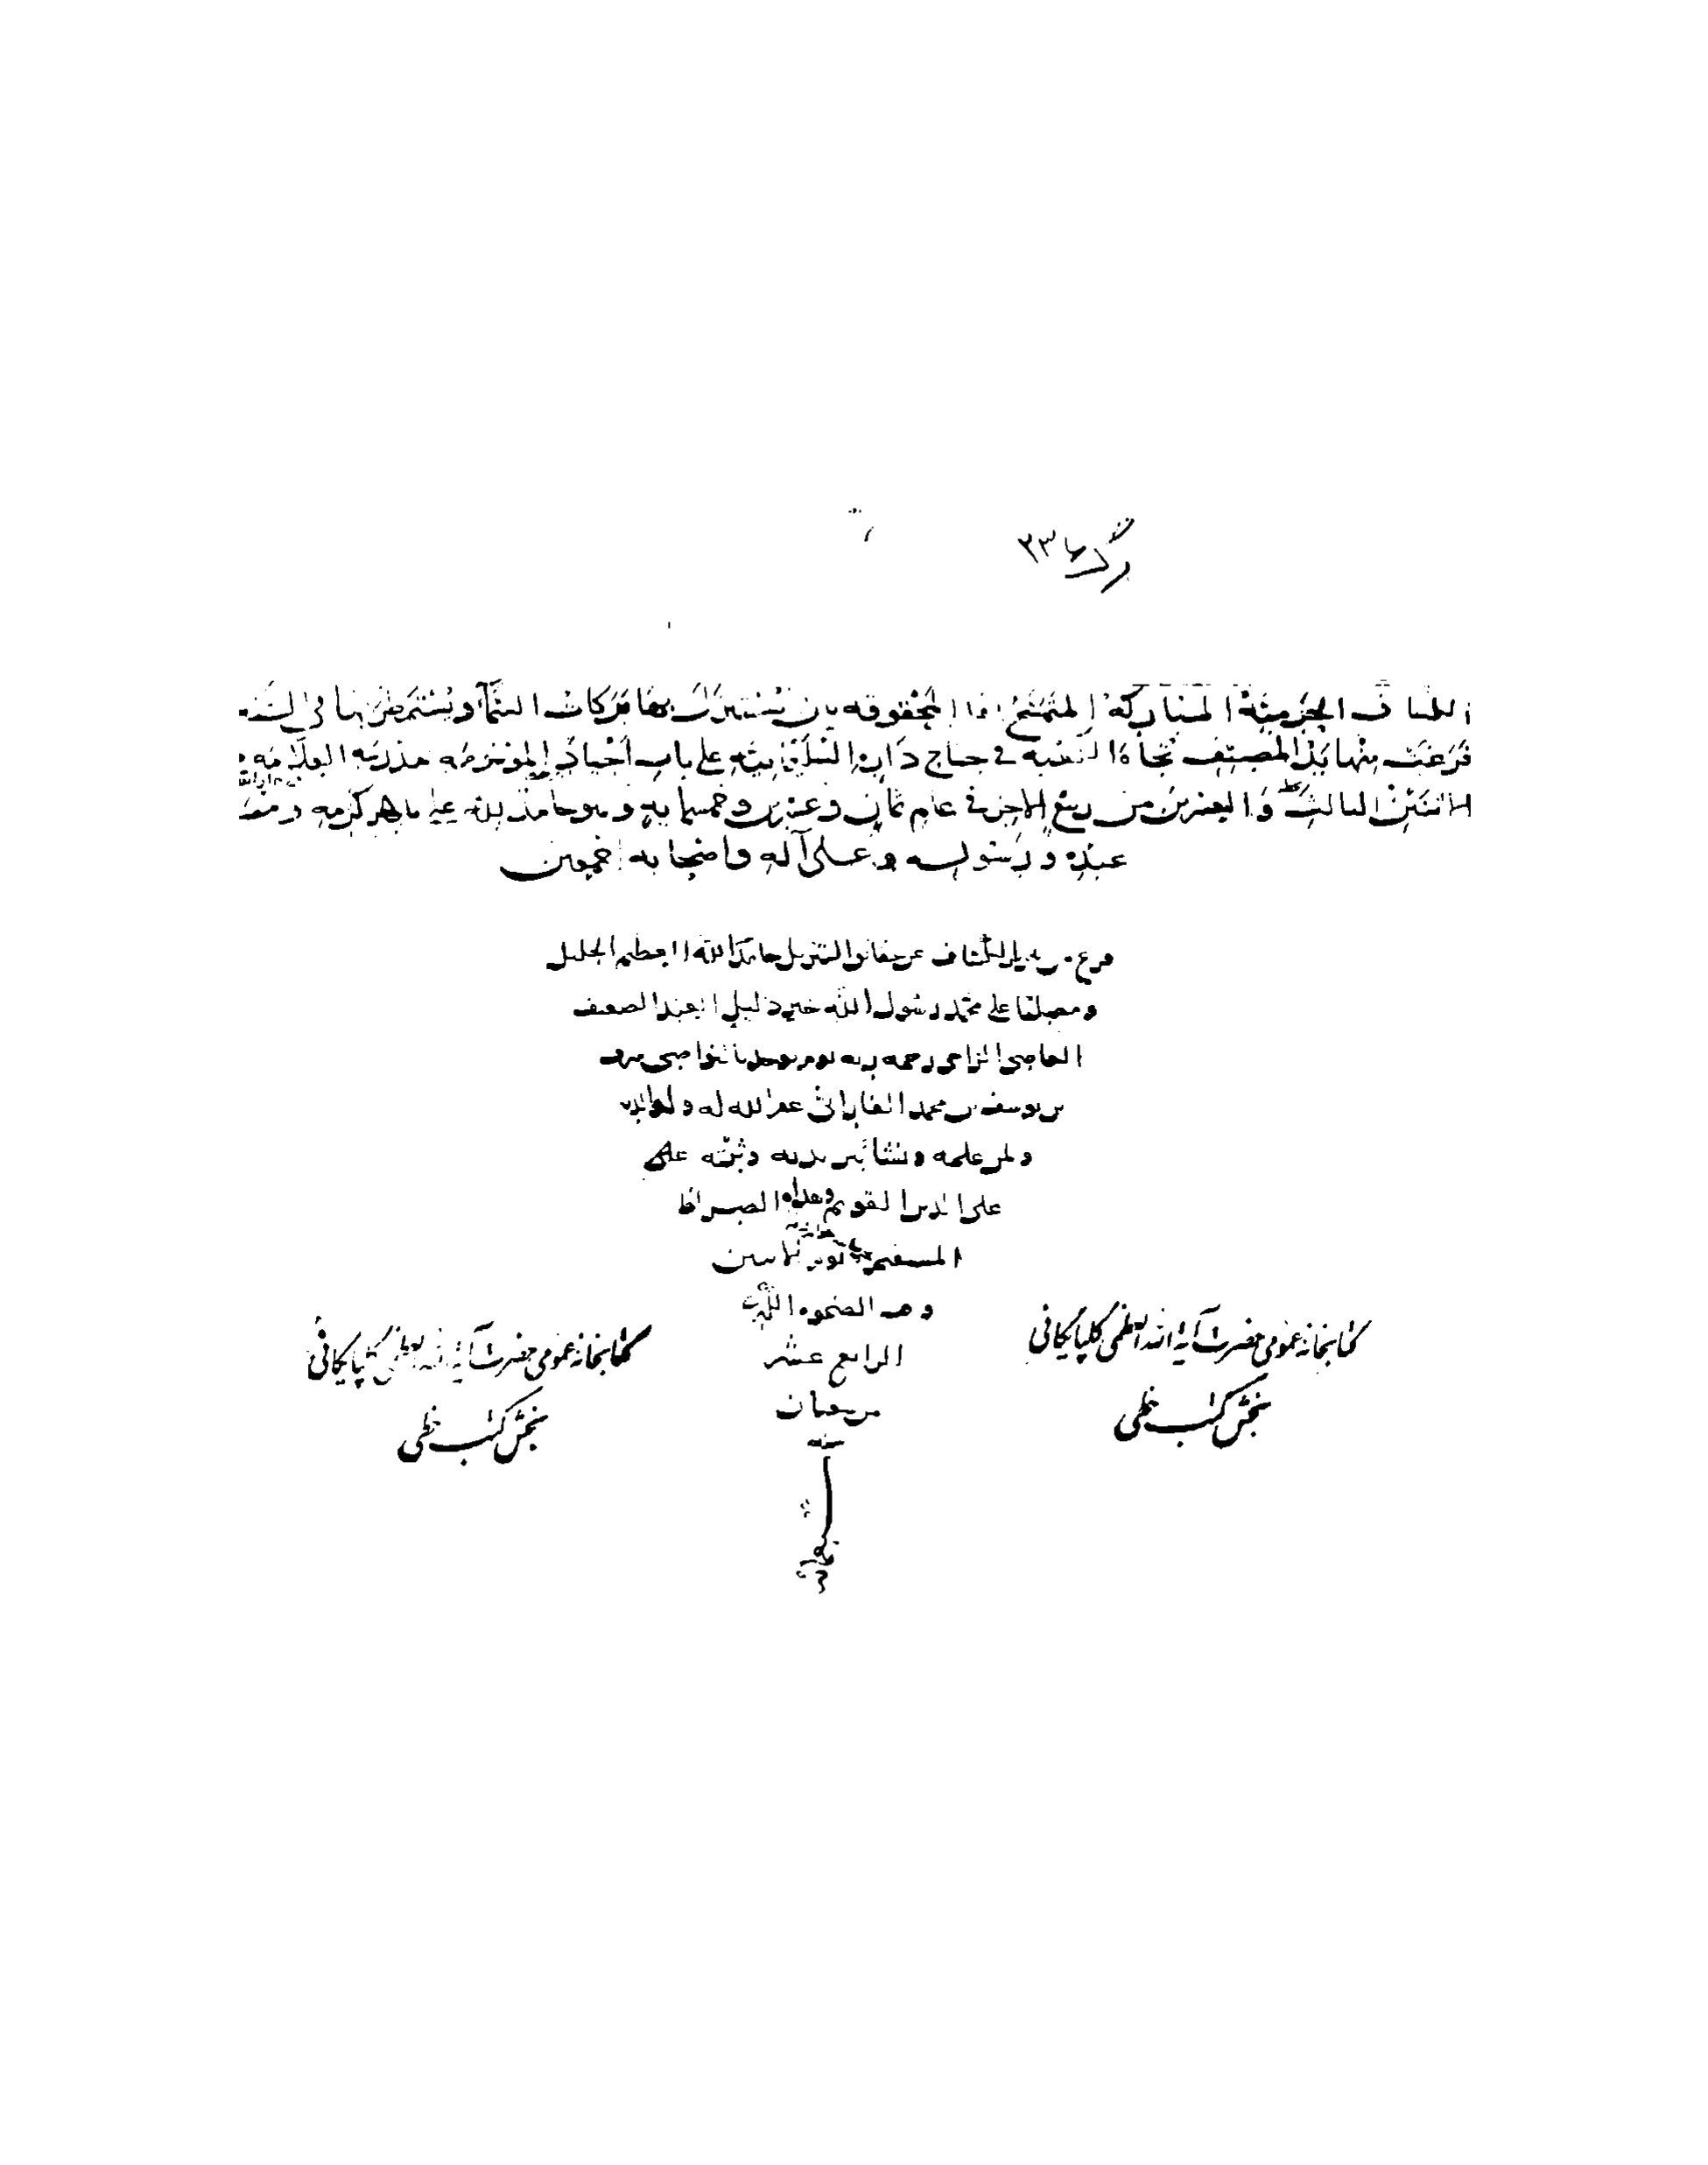 برگ ۲۳۶
الكشاف الحرمية المباركة المتمسح بها المحقوقة بان تستنزل بها بركات السما ويستمطر بها في السنة
فرغت منها يد المصنف تجاه الكعبة في جناح داره السليمانية على باب اجياد الموسومة بمدرسة العلامة
الاثنين الثالث والعشرين من ربيع الاخر في عام ثمان وعشرين وخمسماية وهو حامد لله على باهر كرمه
عبده ورسوله وعلى آله واصحابه اجمعين
فرغ من الكشاف عن حقائق التنزيل حامدا لله العظيم الجليل
ومصليا على محمد رسول الله خير دليل العبد الضعيف
العاصي الراجي رحمة ربه يوم يوخذ بالنواصي
بن يوسف بن محمد الفارابي غفر الله له ولوالديه
ولمن علمه وثبته على
على الدين القويم وهداه الصراط
المستقيم
وقت الضحوة الكبرى
الرابع عشر
من شعبان
سنة
كتابخانه عمومى حضرت آية الله العظمى گلپايگانى
بخش كتب خطى
كتابخانه عمومى حضرت آية الله العظمى گلپايگانى
بخش كتب خطى